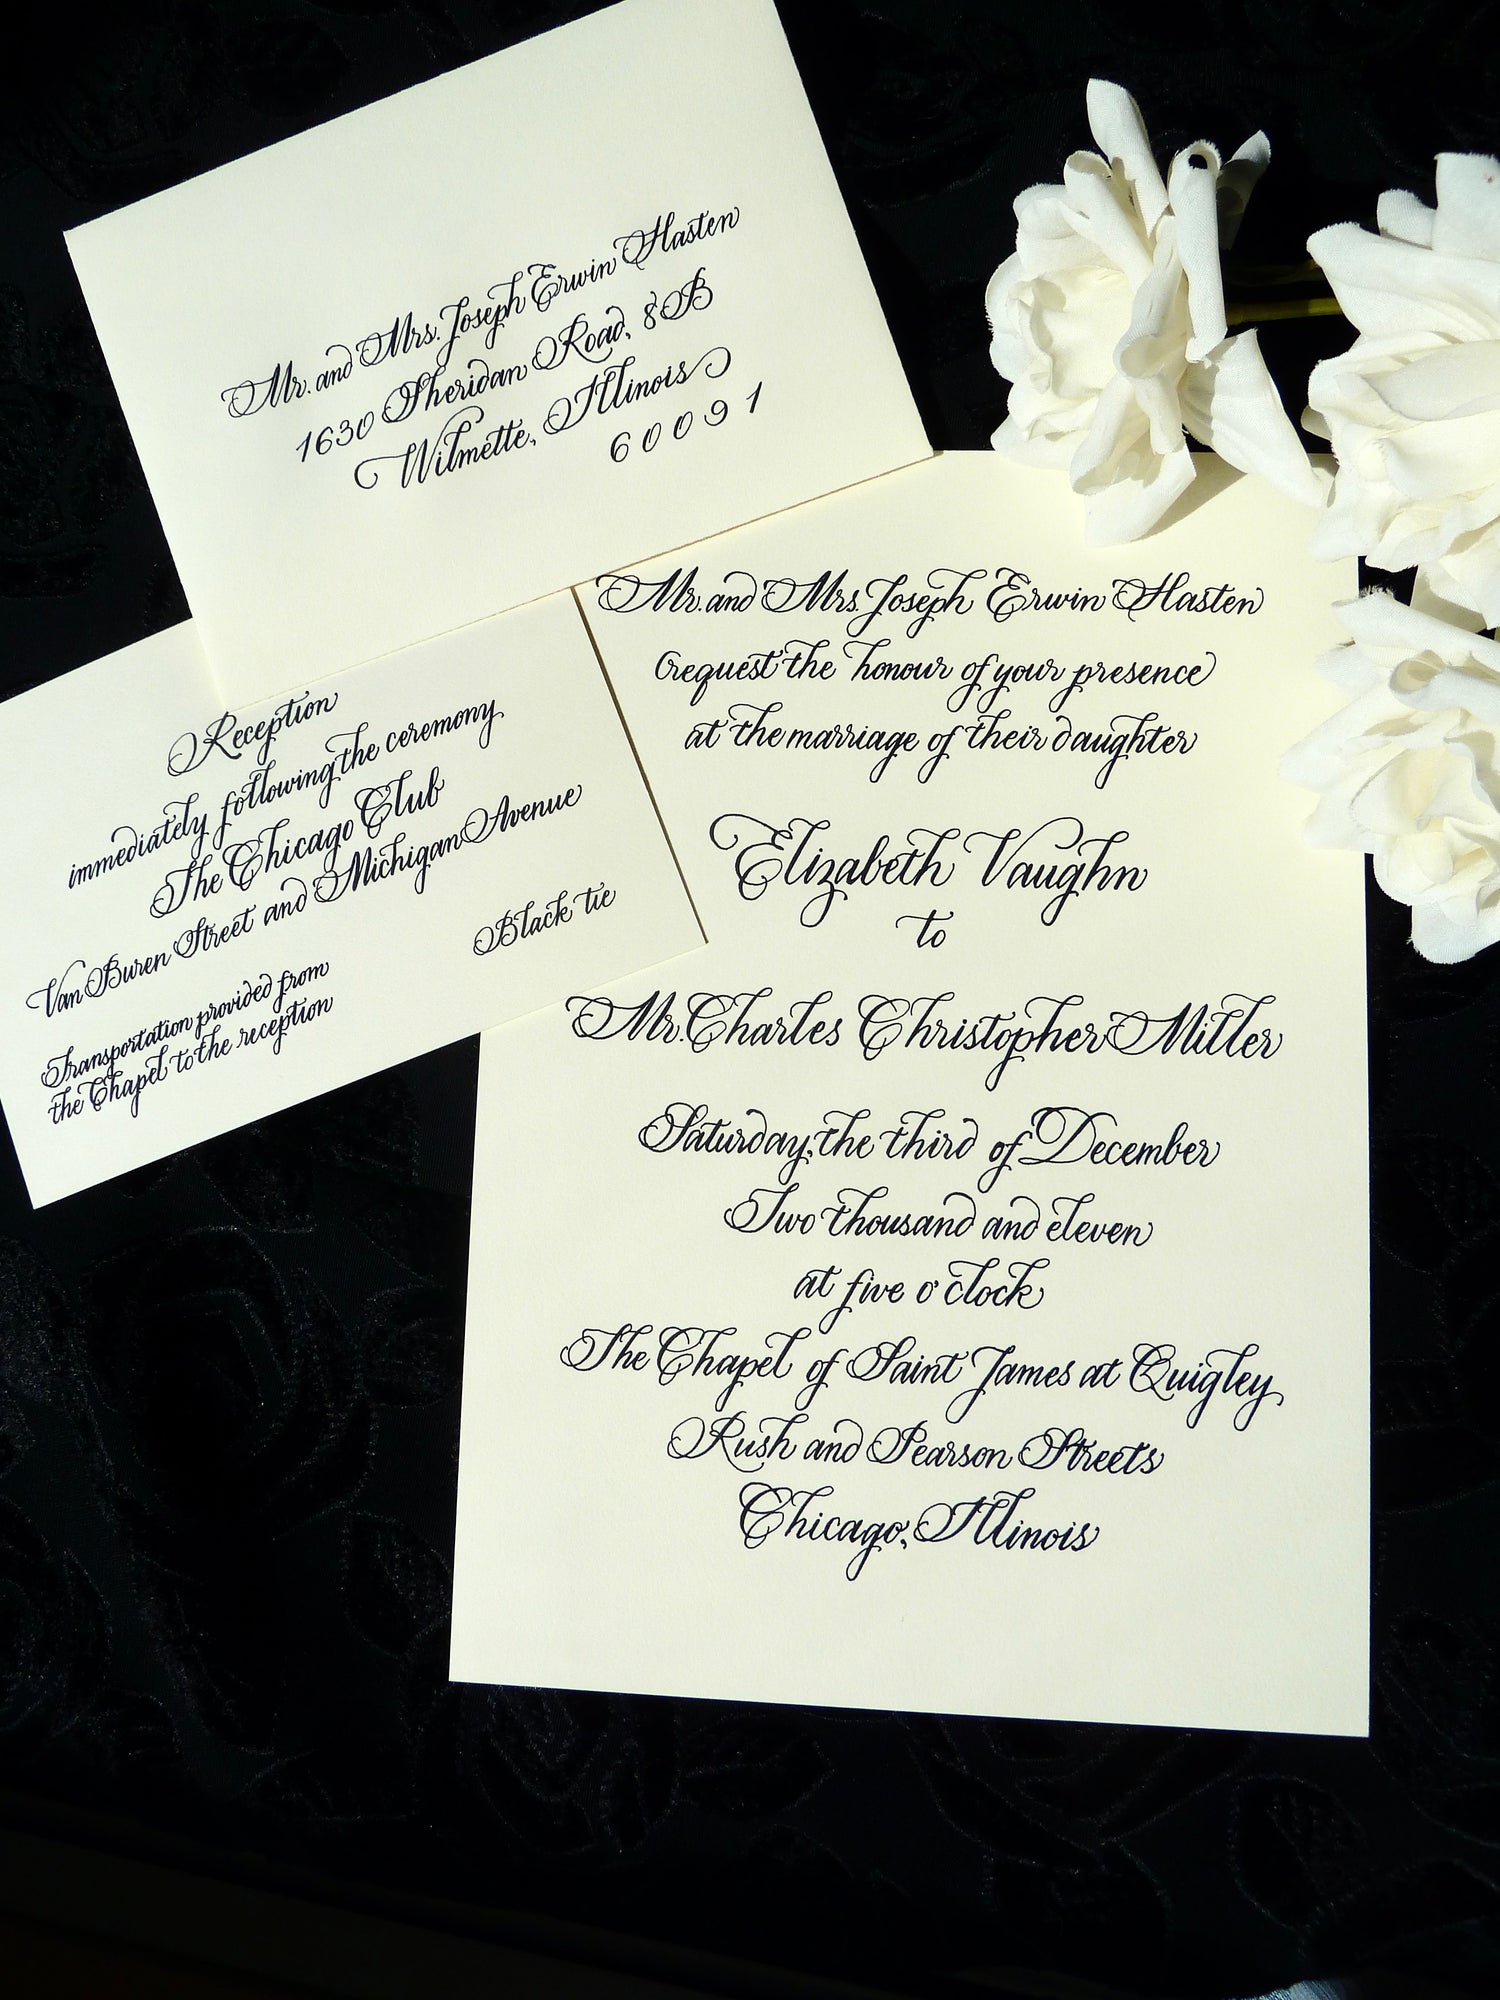 Mr. and Mrs. Joseph Erwin Hasten
1630 Sheridan Road, 8B
Wilmette, Illinois
60091
Reception
immediately following the ceremony
The Chicago Club
Van Buren Street and Michigan Avenue
Black tie
Transportation provided from
the Chapel to the reception
Mr. and Mrs. Joseph Erwin Hasten
request the honour of your presence
at the marriage of their daughter
Elizabeth Vaughn
to
Mr. Charles Christopher Miller
Saturday, the third of December
Two thousand and eleven
at five o'clock
The Chapel of Saint James at Quigley
Rush and Pearson Streets
Chicago, Illinois